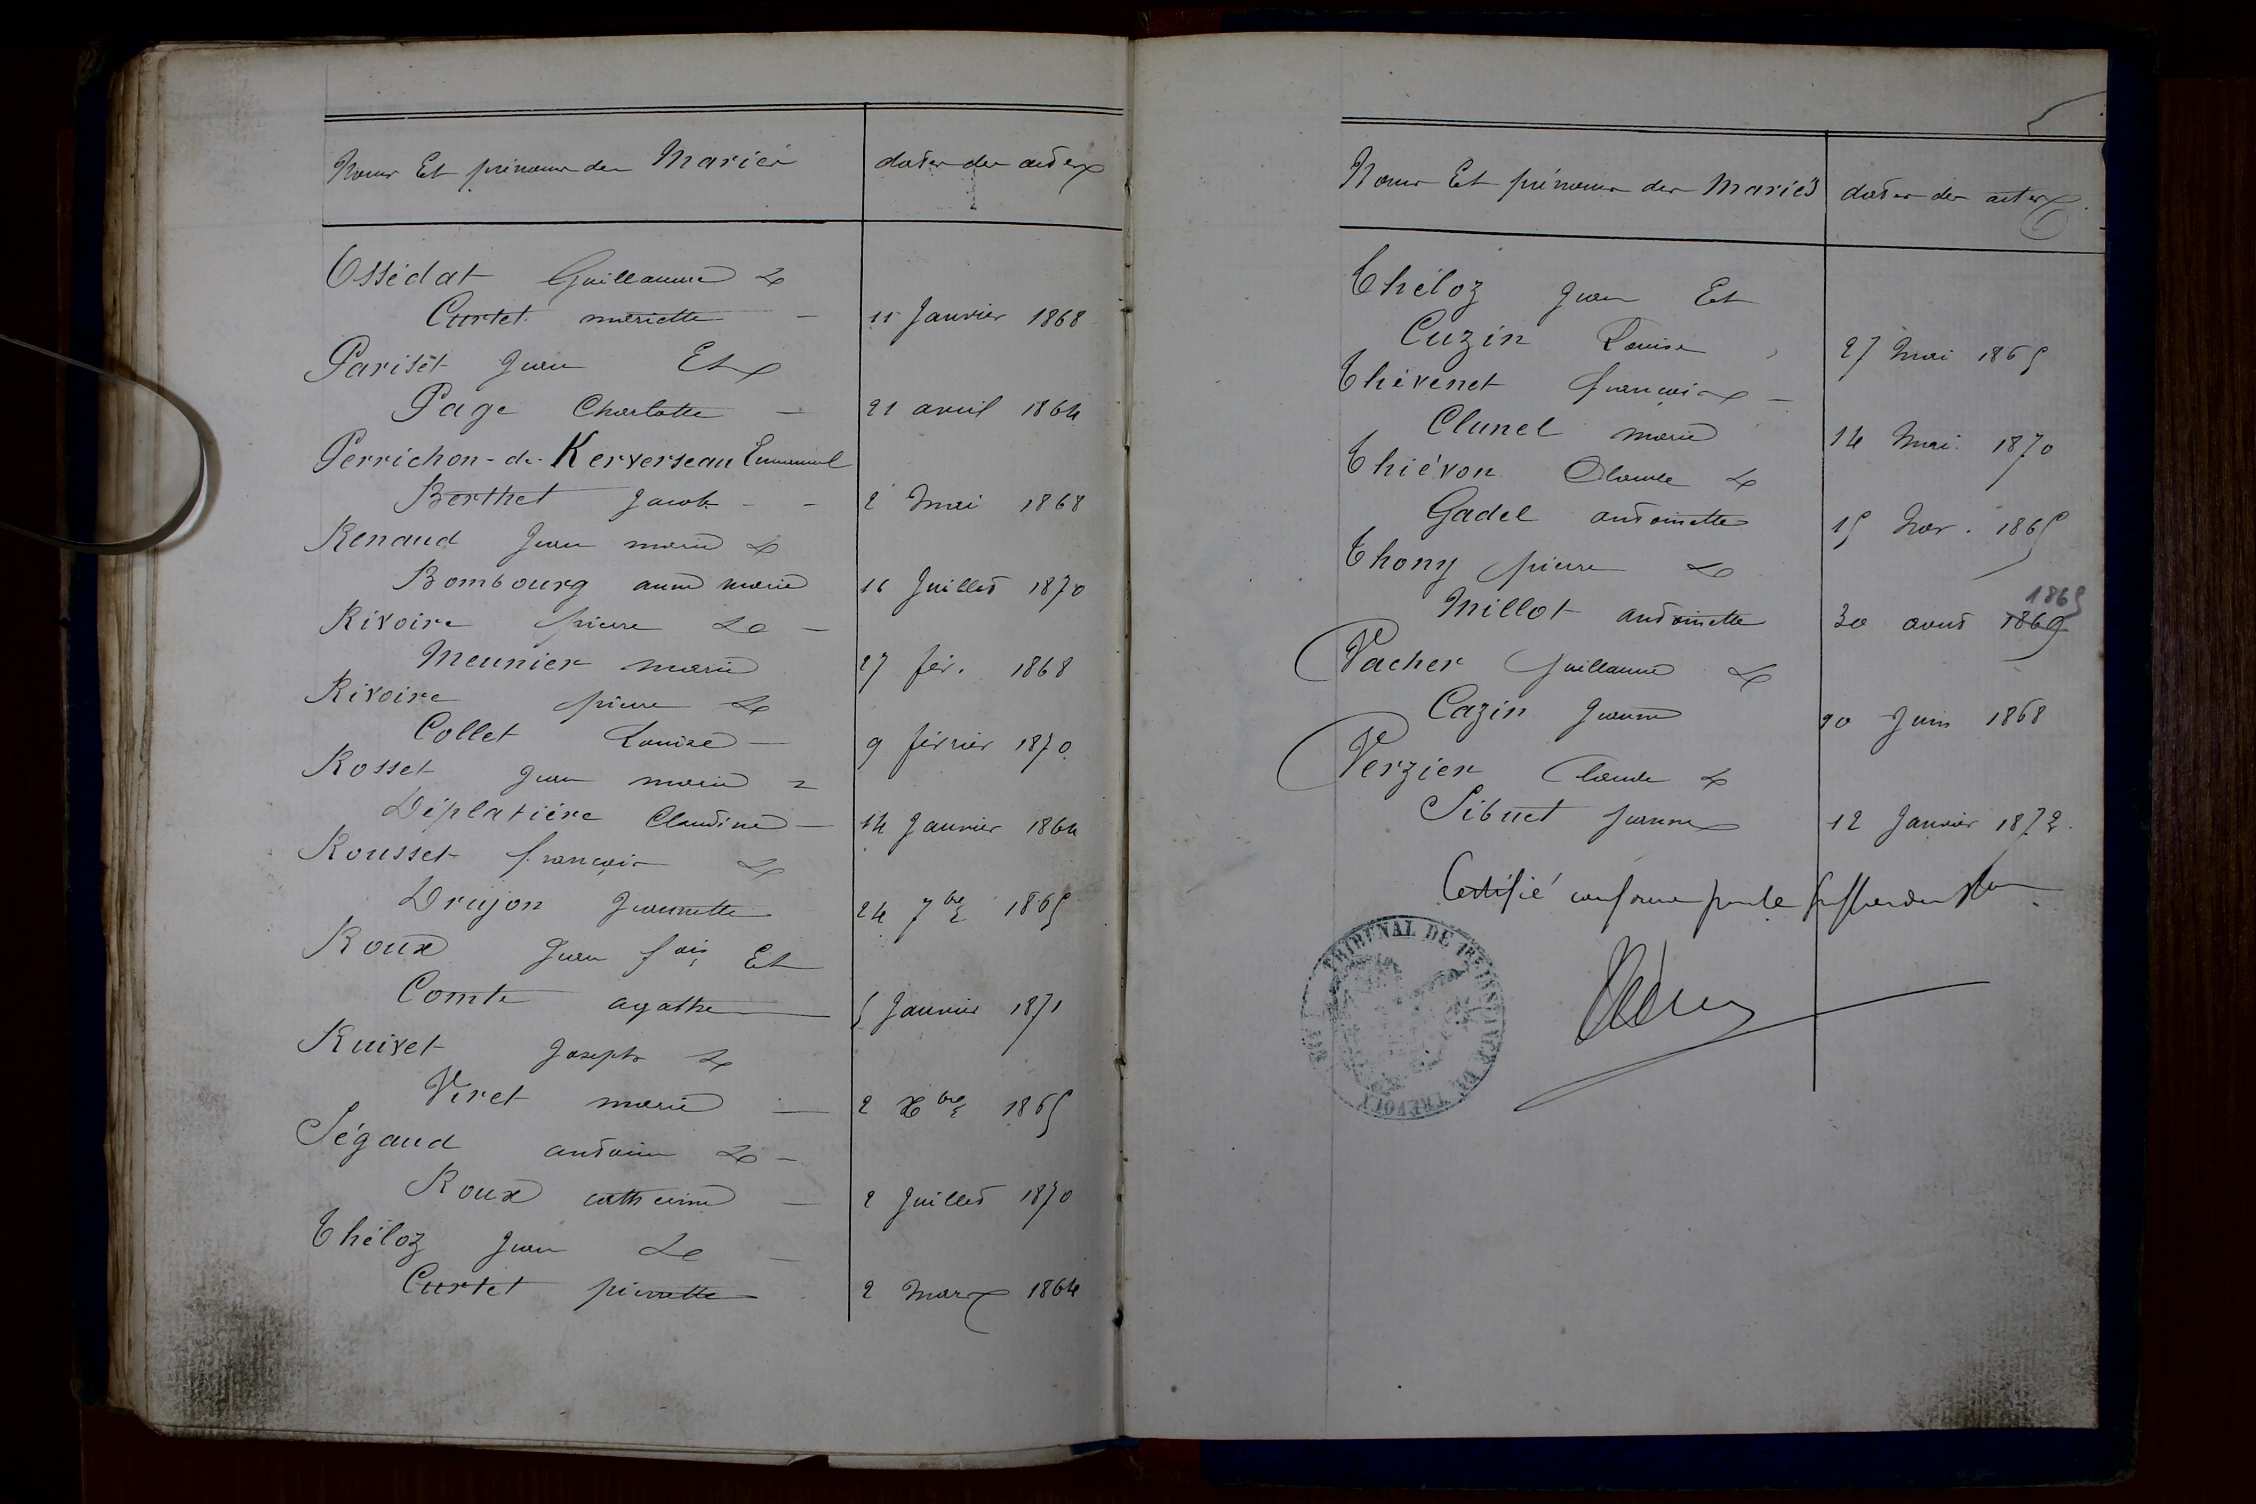 Noms Et prénoms des Mariés dates des actes
Ossédat Guillaume &
Curtet mariette - 11 Janvier 1868
Pariset Jean Et
Page Charlotte - 21 avril 1864
Perrichon-de-Kerverseau Emmanuel
Berthet Jacob - - 2 Mai 1868
Renaud Jean marie &
Bombourg anne marie 16 Juillet 1870
Rivoire pierre & -
Meunier marie 27 fév. 1868
Rivoire pierre &
Collet Louise - 9 février 1870
Rosset Jean marie &
Déplatière Claudine - 14 Janvier 1864
Rousset françois &
Drujon Jeannette 24 7bre 1865
Roux Jean fois Et
Comte agathe 5 Janvier 1871
Ruivet Joseph &
Viret marie - 2 Xbre 1865
Ségaud antoine & -
Roux catherine - 2 Juillet 1870
Théloz Jean & -
Curtet pierrette 2 Mars 1864
Noms Et prénoms des Mariés dates des actes
Théloz Jean Et
Cuzin Louise 27 Mai 1865
Thévenet françois -
Clunel marie 14 Mai. 1870
Thiévon Claude &
Gadel antoinette 15 Nov. 1865
Thony pierre &
1865
Millot antoinette 30 aout 1869
Vacher Guillaume &
Cazin Jeanne 20 Juin 1868
Verzier Claude &
Sibuet Jeanne 12 Janvier 1872.
Certifié conforme par le
TRIBUNAL DE 1RE INSTANCE DE TRÉVOUX